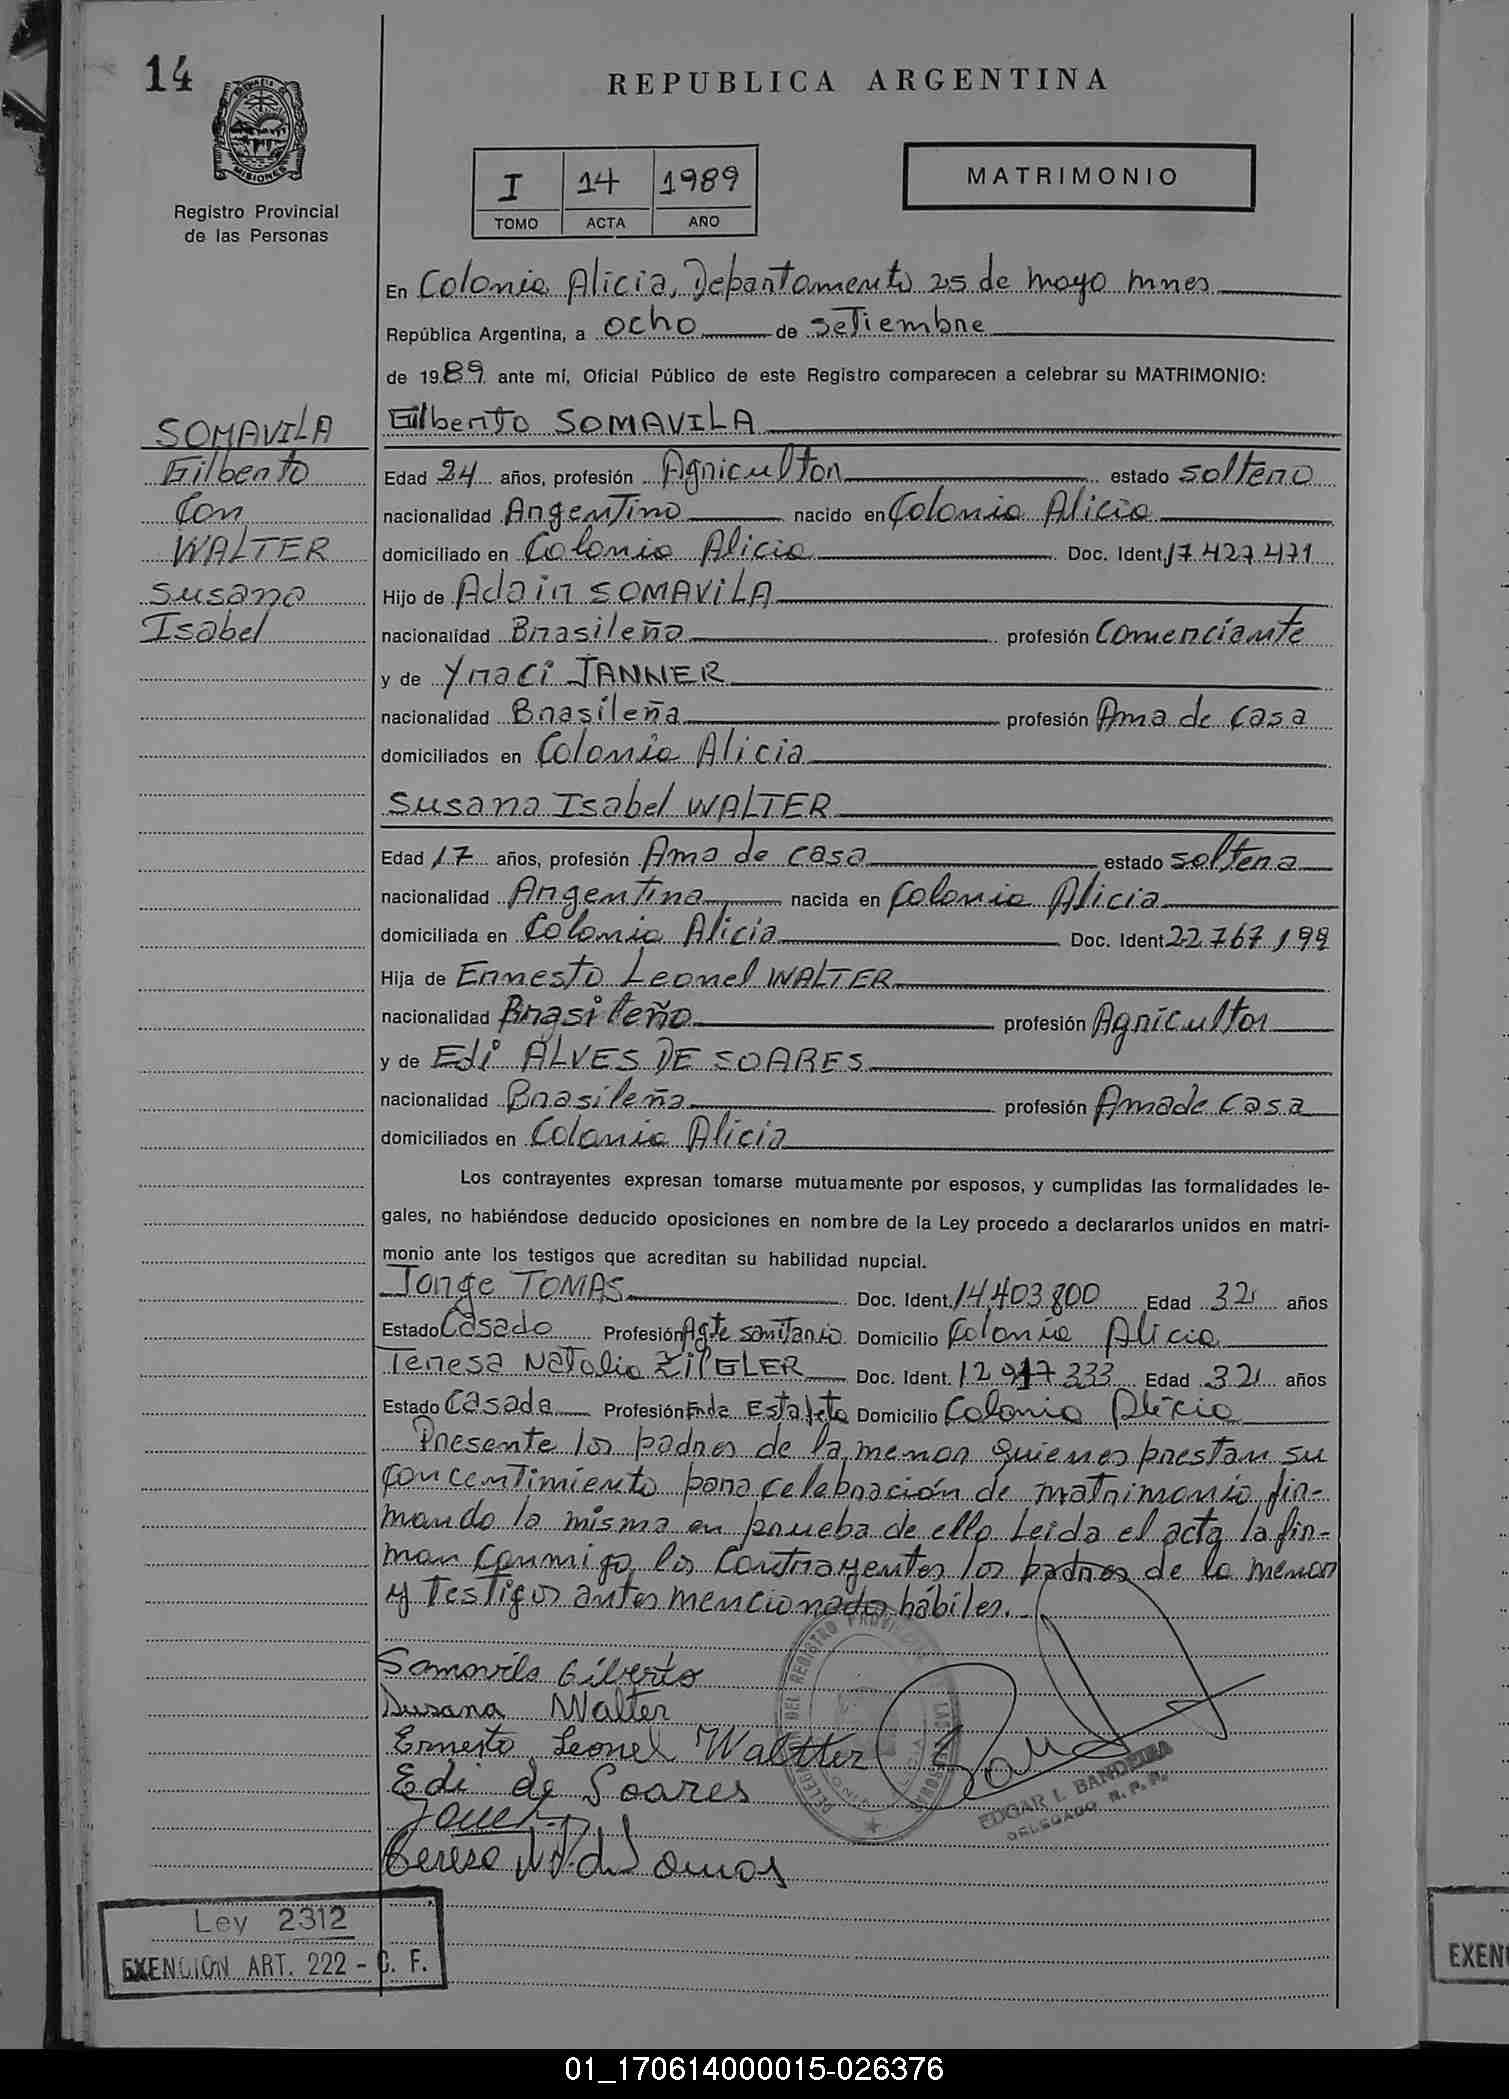 14
REPUBLICA ARGENTINA
MISIONES
Registro Provincial
de las Personas
I 14 1989
TOMO ACTA AÑO
MATRIMONIO
En Colonia Alicia, Departamento 25 de mayo mnes
República Argentina, a ocho de setiembre
de 1989 ante mí, Oficial Público de este Registro comparecen a celebrar su MATRIMONIO:
Gilberto SOMAVILA
SOMAVILA
Gilberto
Con
WALTER
Susana
Isabel
Edad 24 años, profesión Agricultor estado soltero
nacionalidad Argentino nacido en Colonia Alicia
domiciliado en Colonia Alicia Doc. Ident. 17.427.471
Hijo de Adair SOMAVILA
nacionalidad Brasileño profesión Comerciante
y de Yraci JANNER
nacionalidad Brasileña profesión Ama de casa
domiciliados en Colonia Alicia
Susana Isabel WALTER
Edad 17 años, profesión Ama de casa estado soltera
nacionalidad Argentina nacida en Colonia Alicia
domiciliada en Colonia Alicia Doc. Ident. 22.767.199
Hija de Ernesto Leonel WALTER
nacionalidad Brasileño profesión Agricultor
y de Edi ALVES DE SOARES
nacionalidad Brasileña profesión Ama de casa
domiciliados en Colonia Alicia
Los contrayentes expresan tomarse mutuamente por esposos, y cumplidas las formalidades le-
gales, no habiéndose deducido oposiciones en nombre de la Ley procedo a declararlos unidos en matri-
monio ante los testigos que acreditan su habilidad nupcial.
Jorge TOMAS Doc. Ident. 14.403.800 Edad 32 años
Estado Casado Profesión Agte sanitario Domicilio Colonia Alicia
Teresa Natalia ZIEGLER Doc. Ident. 12.917.333 Edad 32 años
Estado Casada Profesión Enda Estafeta Domicilio Colonia Alicia
Presente los padres de la menor quienes prestan su
concentimiento para celebración de matrimonio fir-
mando la misma en prueba de ello Leida el acta la fir-
man conmigo los contrayentes los padres de la menor
y testigos antes mencionados hábiles.
Somavila Gilberto
Susana Walter
Ernesto Leonel Waltter
Edi de Soares
Teresa N. Z. de Tomas
EDGAR I. BANDEIRA
DELEGADO R. P. P.
Ley 2312
EXENCION ART. 222 - C. F.
EXEN
01_170614000015-026376